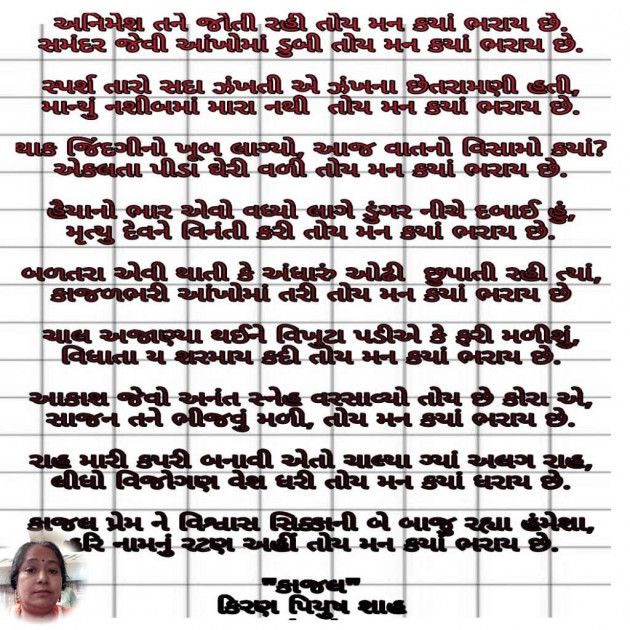 અનિમેશ તને જોતી રહી તોય મન કયાં ભરાય છે.
સમંદર જેવી આંખોમાં ડુબી તોય મન કયાં ભરાય છે.
સ્પર્શ તારો સદા ઝંખતી એ ઝંખના છેતરામણી હતી,
માન્યું નશીબમાં મારા નથી તોય મન કયાં ભરાય છે.
થાક જિંદગીનો ખૂબ લાગ્યો, આજ વાતનો વિસામો કયાં?
એકલતા પીડા ઘેરી વળી તોય મન કયાં ભરાય છે.
હૈયાનો ભાર એવો વધ્યો લાગે ડુંગર નીચે દબાઈ હું,
મૃત્યુ દેવને વિનંતી કરી તોય મન કયાં ભરાય છે.
બળતરા એવી થાતી કે અંધારું ઓઢી છુપાતી રહી ત્યાં,
કાજળભરી આંખોમાં તરી તોય મન કયાં ભરાય છે
ચાલ અજાણ્યા થઈને વિખુટા પડીએ કે ફરી મળીશું,
વિધાતા ય શરમાય કદી તોય મન કયાં ભરાય છે.
આકાશ જેવો અનંત સ્નેહ વરસાવ્યો તોય છે કોરા એ,
સાજન તને ભીજવું મળી, તોય મન કયાં ભરાય છે.
રાહ મારી કપરી બનાવી એતો ચાલ્યા ગ્યાં અલગ રાહ,
લીધો વિજોગણ વેશ ધરી તોય મન કયાં ધરાય છે.
કાજલ પ્રેમ ને વિશ્વાસ સિક્કાની બે બાજુ રહ્યા હંમેશા,
હરિ નામનું રટણ અહીં તોય મન કયાં ભરાય છે.
"કાજલ"
કિરણ પિયુષ શાહ